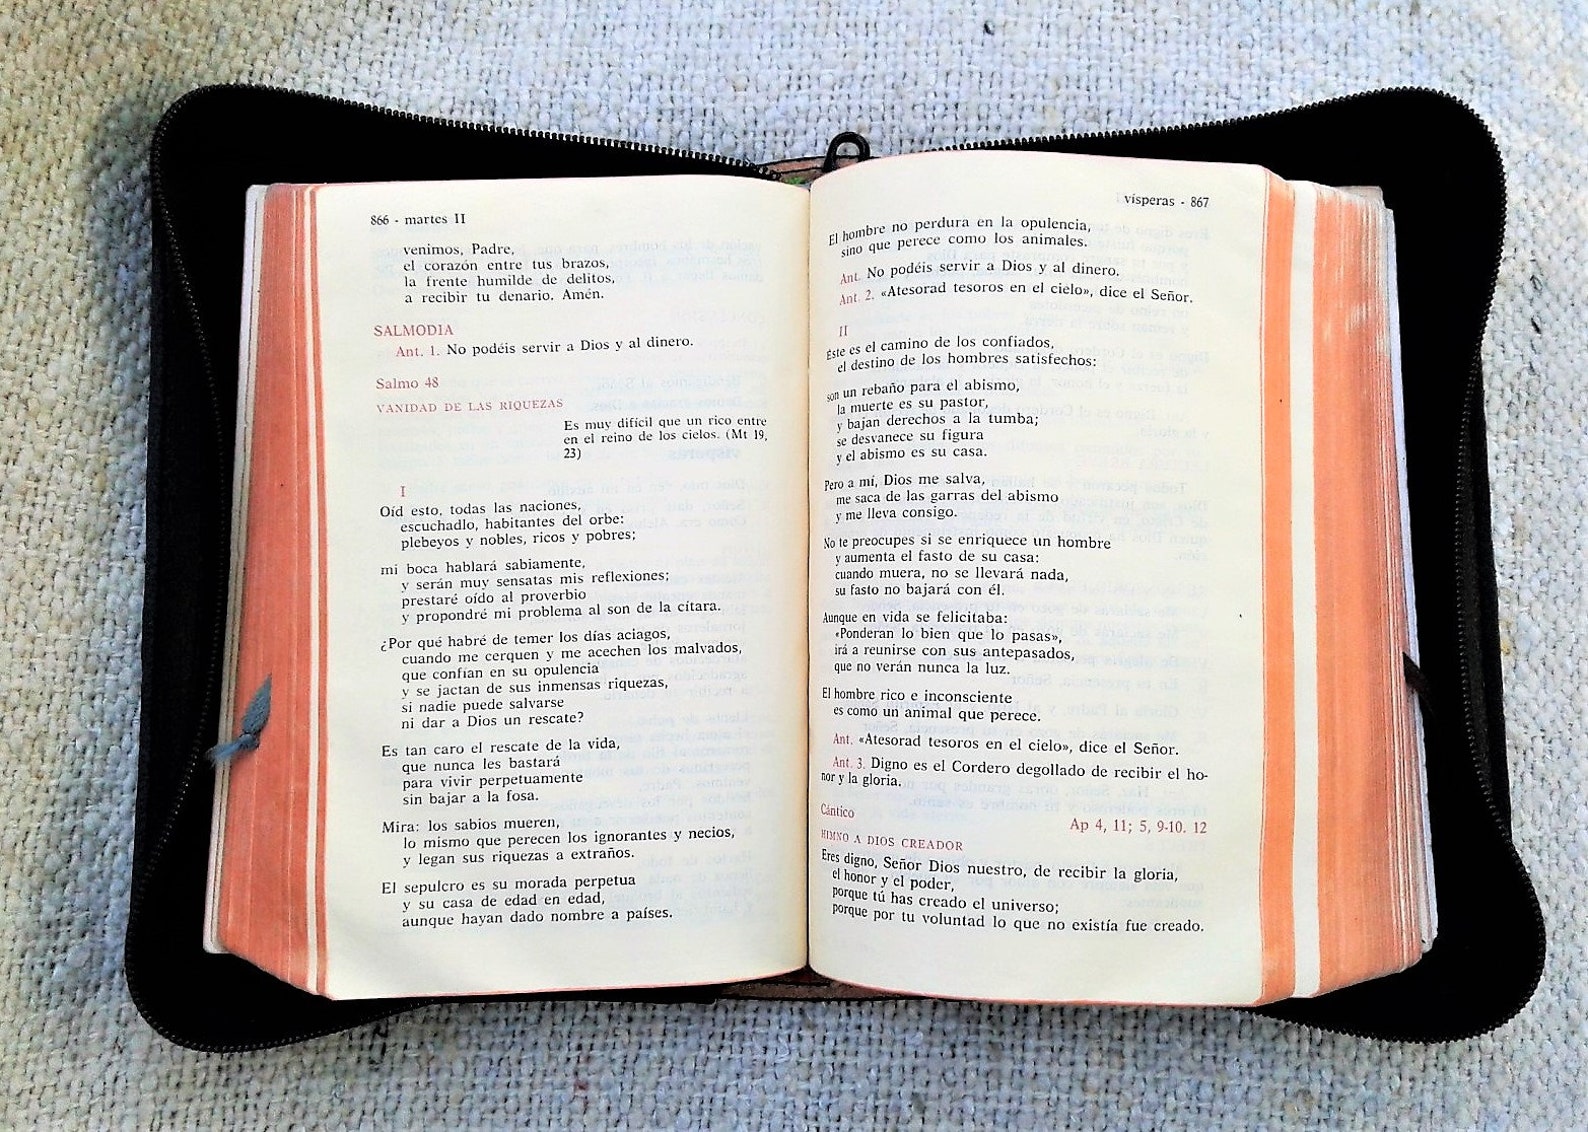 866 - martes II
venimos, Padre,
el corazón entre tus brazos,
la frente humilde de delitos,
a recibir tu denario. Amén.
SALMODIA
Ant. 1. No podéis servir a Dios y al dinero.
Salmo 48
VANIDAD DE LAS RIQUEZAS
Es muy difícil que un rico entre
en el reino de los cielos. (Mt 19,
23)
I
Oíd esto, todas las naciones,
escuchadlo, habitantes del orbe:
plebeyos y nobles, ricos y pobres;
mi boca hablará sabiamente,
y serán muy sensatas mis reflexiones;
prestaré oído al proverbio
y propondré mi problema al son de la cítara.
¿Por qué habré de temer los días aciagos,
cuando me cerquen y me acechen los malvados,
que confían en su opulencia
y se jactan de sus inmensas riquezas,
si nadie puede salvarse
ni dar a Dios un rescate?
Es tan caro el rescate de la vida,
que nunca les bastará
para vivir perpetuamente
sin bajar a la fosa.
Mira: los sabios mueren,
lo mismo que perecen los ignorantes y necios,
y legan sus riquezas a extraños.
El sepulcro es su morada perpetua
y su casa de edad en edad,
aunque hayan dado nombre a países.
vísperas - 867
El hombre no perdura en la opulencia,
sino que perece como los animales.
Ant. No podéis servir a Dios y al dinero.
Ant. 2. «Atesorad tesoros en el cielo», dice el Señor.
II
Éste es el camino de los confiados,
el destino de los hombres satisfechos:
son un rebaño para el abismo,
la muerte es su pastor,
y bajan derechos a la tumba;
se desvanece su figura
y el abismo es su casa.
Pero a mí, Dios me salva,
me saca de las garras del abismo
y me lleva consigo.
No te preocupes si se enriquece un hombre
y aumenta el fasto de su casa:
cuando muera, no se llevará nada,
su fasto no bajará con él.
Aunque en vida se felicitaba:
«Ponderan lo bien que lo pasas»,
irá a reunirse con sus antepasados,
que no verán nunca la luz.
El hombre rico e inconsciente
es como un animal que perece.
Ant. «Atesorad tesoros en el cielo», dice el Señor.
Ant. 3. Digno es el Cordero degollado de recibir el ho-
nor y la gloria.
Cántico
Ap 4, 11; 5, 9-10. 12
HIMNO A DIOS CREADOR
Eres digno, Señor Dios nuestro, de recibir la gloria,
el honor y el poder,
porque tú has creado el universo;
porque por tu voluntad lo que no existía fue creado.